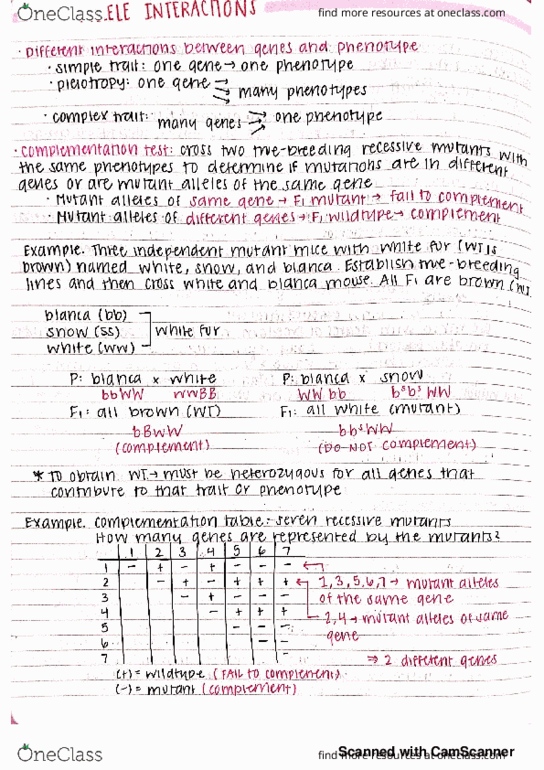 OneClass.
ELE INTERACTIONS
find more resources at oneclass.com
· Different interactions between genes and phenotype
· simple trait: one gene → one phenotype
· pleiotropy: one gene → many phenotypes
· complex trait: many genes → one phenotype
· complementation test: cross two true-breeding recessive mutants with
the same phenotypes to determine if mutations are in different
genes or are mutant alleles of the same gene
· Mutant alleles of same gene → F1 mutant → fail to complement
· Mutant alleles of different genes → F1 wildtype → complement
Example. Three independent mutant mice with white fur (WT is
brown) named white, snow, and blanca. Establish true-breeding
lines and then cross white and blanca mouse. All F1 are brown (WT)
blanca (bb)
snow (ss)
white (ww)
white fur
P: blanca x white
bbWW wwBB
F1: all brown (WT)
bBwW
(complement)
P: blanca x snow
WW bb bˢbˢ WW
F1: all white (mutant)
bbˢWW
(DO NOT complement)
* TO obtain WT → must be heterozygous for all genes that
contribute to that trait or phenotype
Example. complementation table: seven recessive mutants
How many genes are represented by the mutants?
1 2 3 4 5 6 7
1 - + - + - - -
2 - + - + + +
3 - + - - -
4 - + + +
5 - - -
6 - -
7 -
1,3,5,6,7 → mutant alleles
of the same gene
2,4 → mutant alleles of same
gene
⇒ 2 different genes
(+) = wildtype (FAIL to complement)
(-) = mutant (complement)
OneClass
find more resources at oneclass.com
Scanned with CamScanner